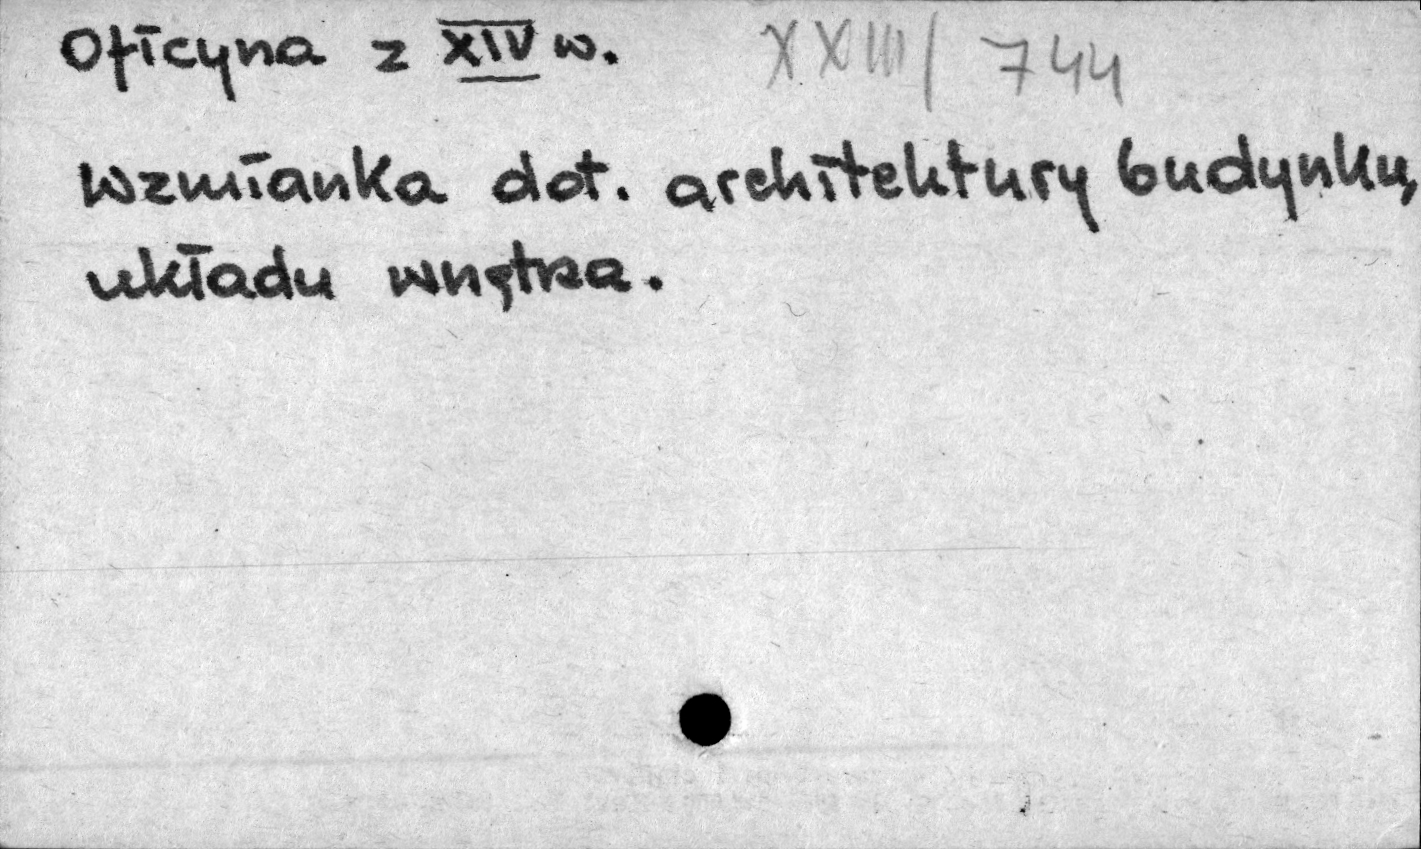 Oficyna z XIV w. XXIII/744
Wzmianka dot. architektury budynku,
układu wnętrza.